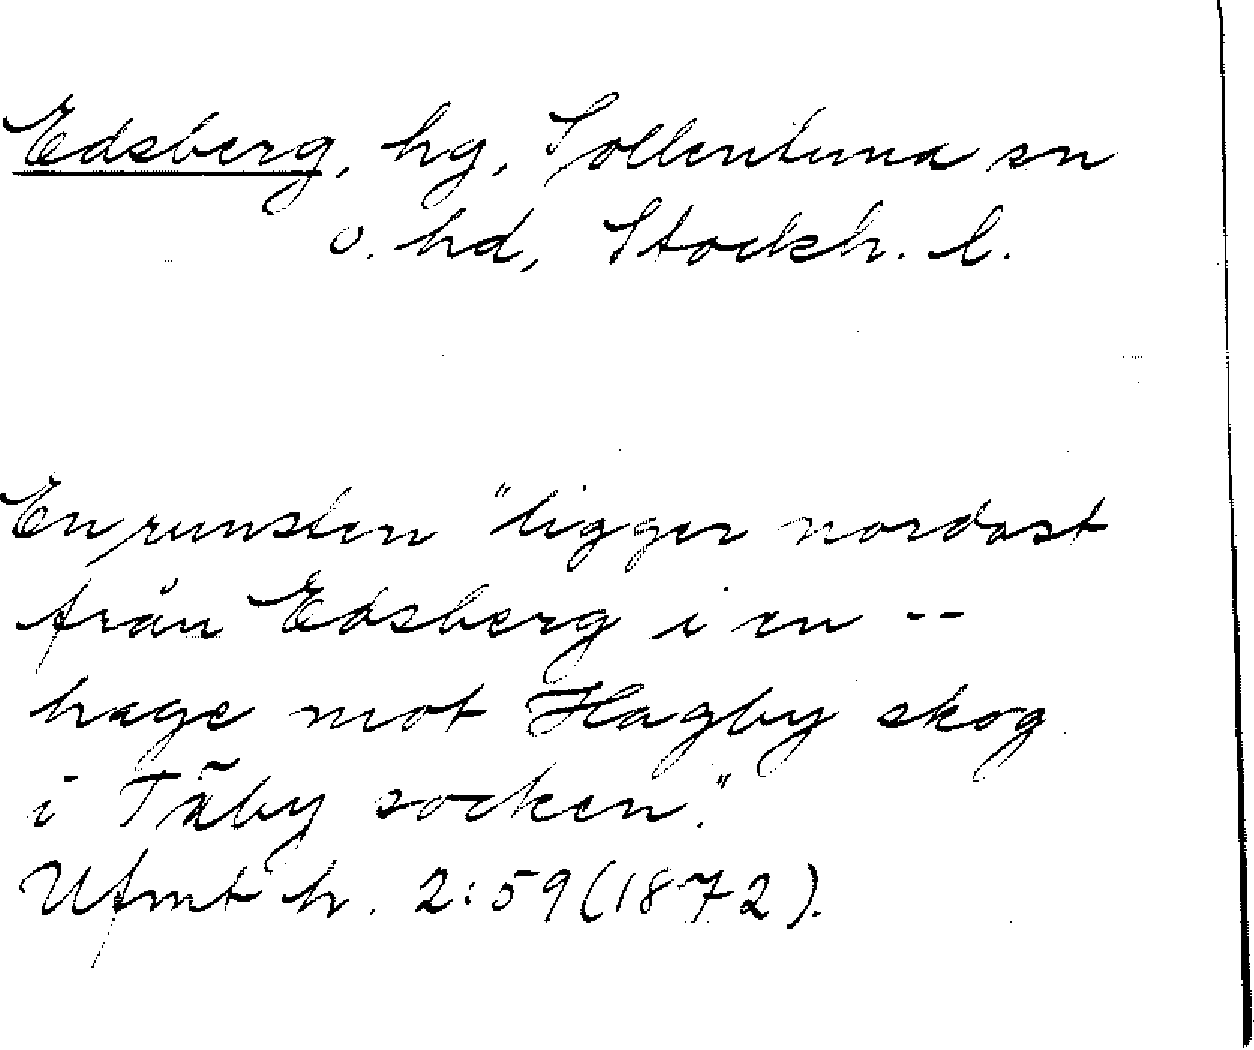 Edsberg, hg, Sollentuna sn
o. hd, Stockh. l.
En runsten "ligger nordost
från Edsberg i en --
hage mot Hagby skog
i Täby socken."
Ufmt h. 2:59 (1872).